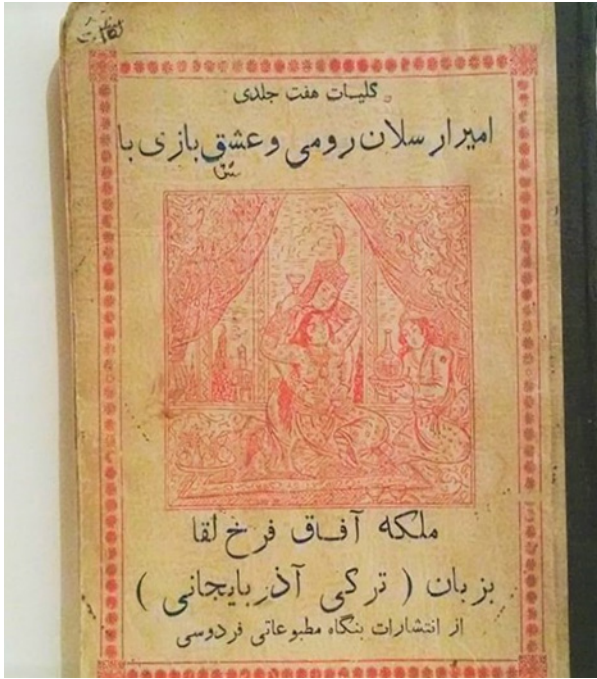 کلیات هفت جلدی
امیر ارسلان رومی و عشق بازی با
ملکه آفاق فرخ لقا
بزبان ( ترکی آذربایجانی )
از انتشارات بنگاه مطبوعاتی فردوسی